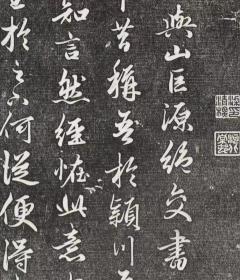 與山巨源絕交書
昔稱吾於潁川
知言然經怪此意
於足下何從便得